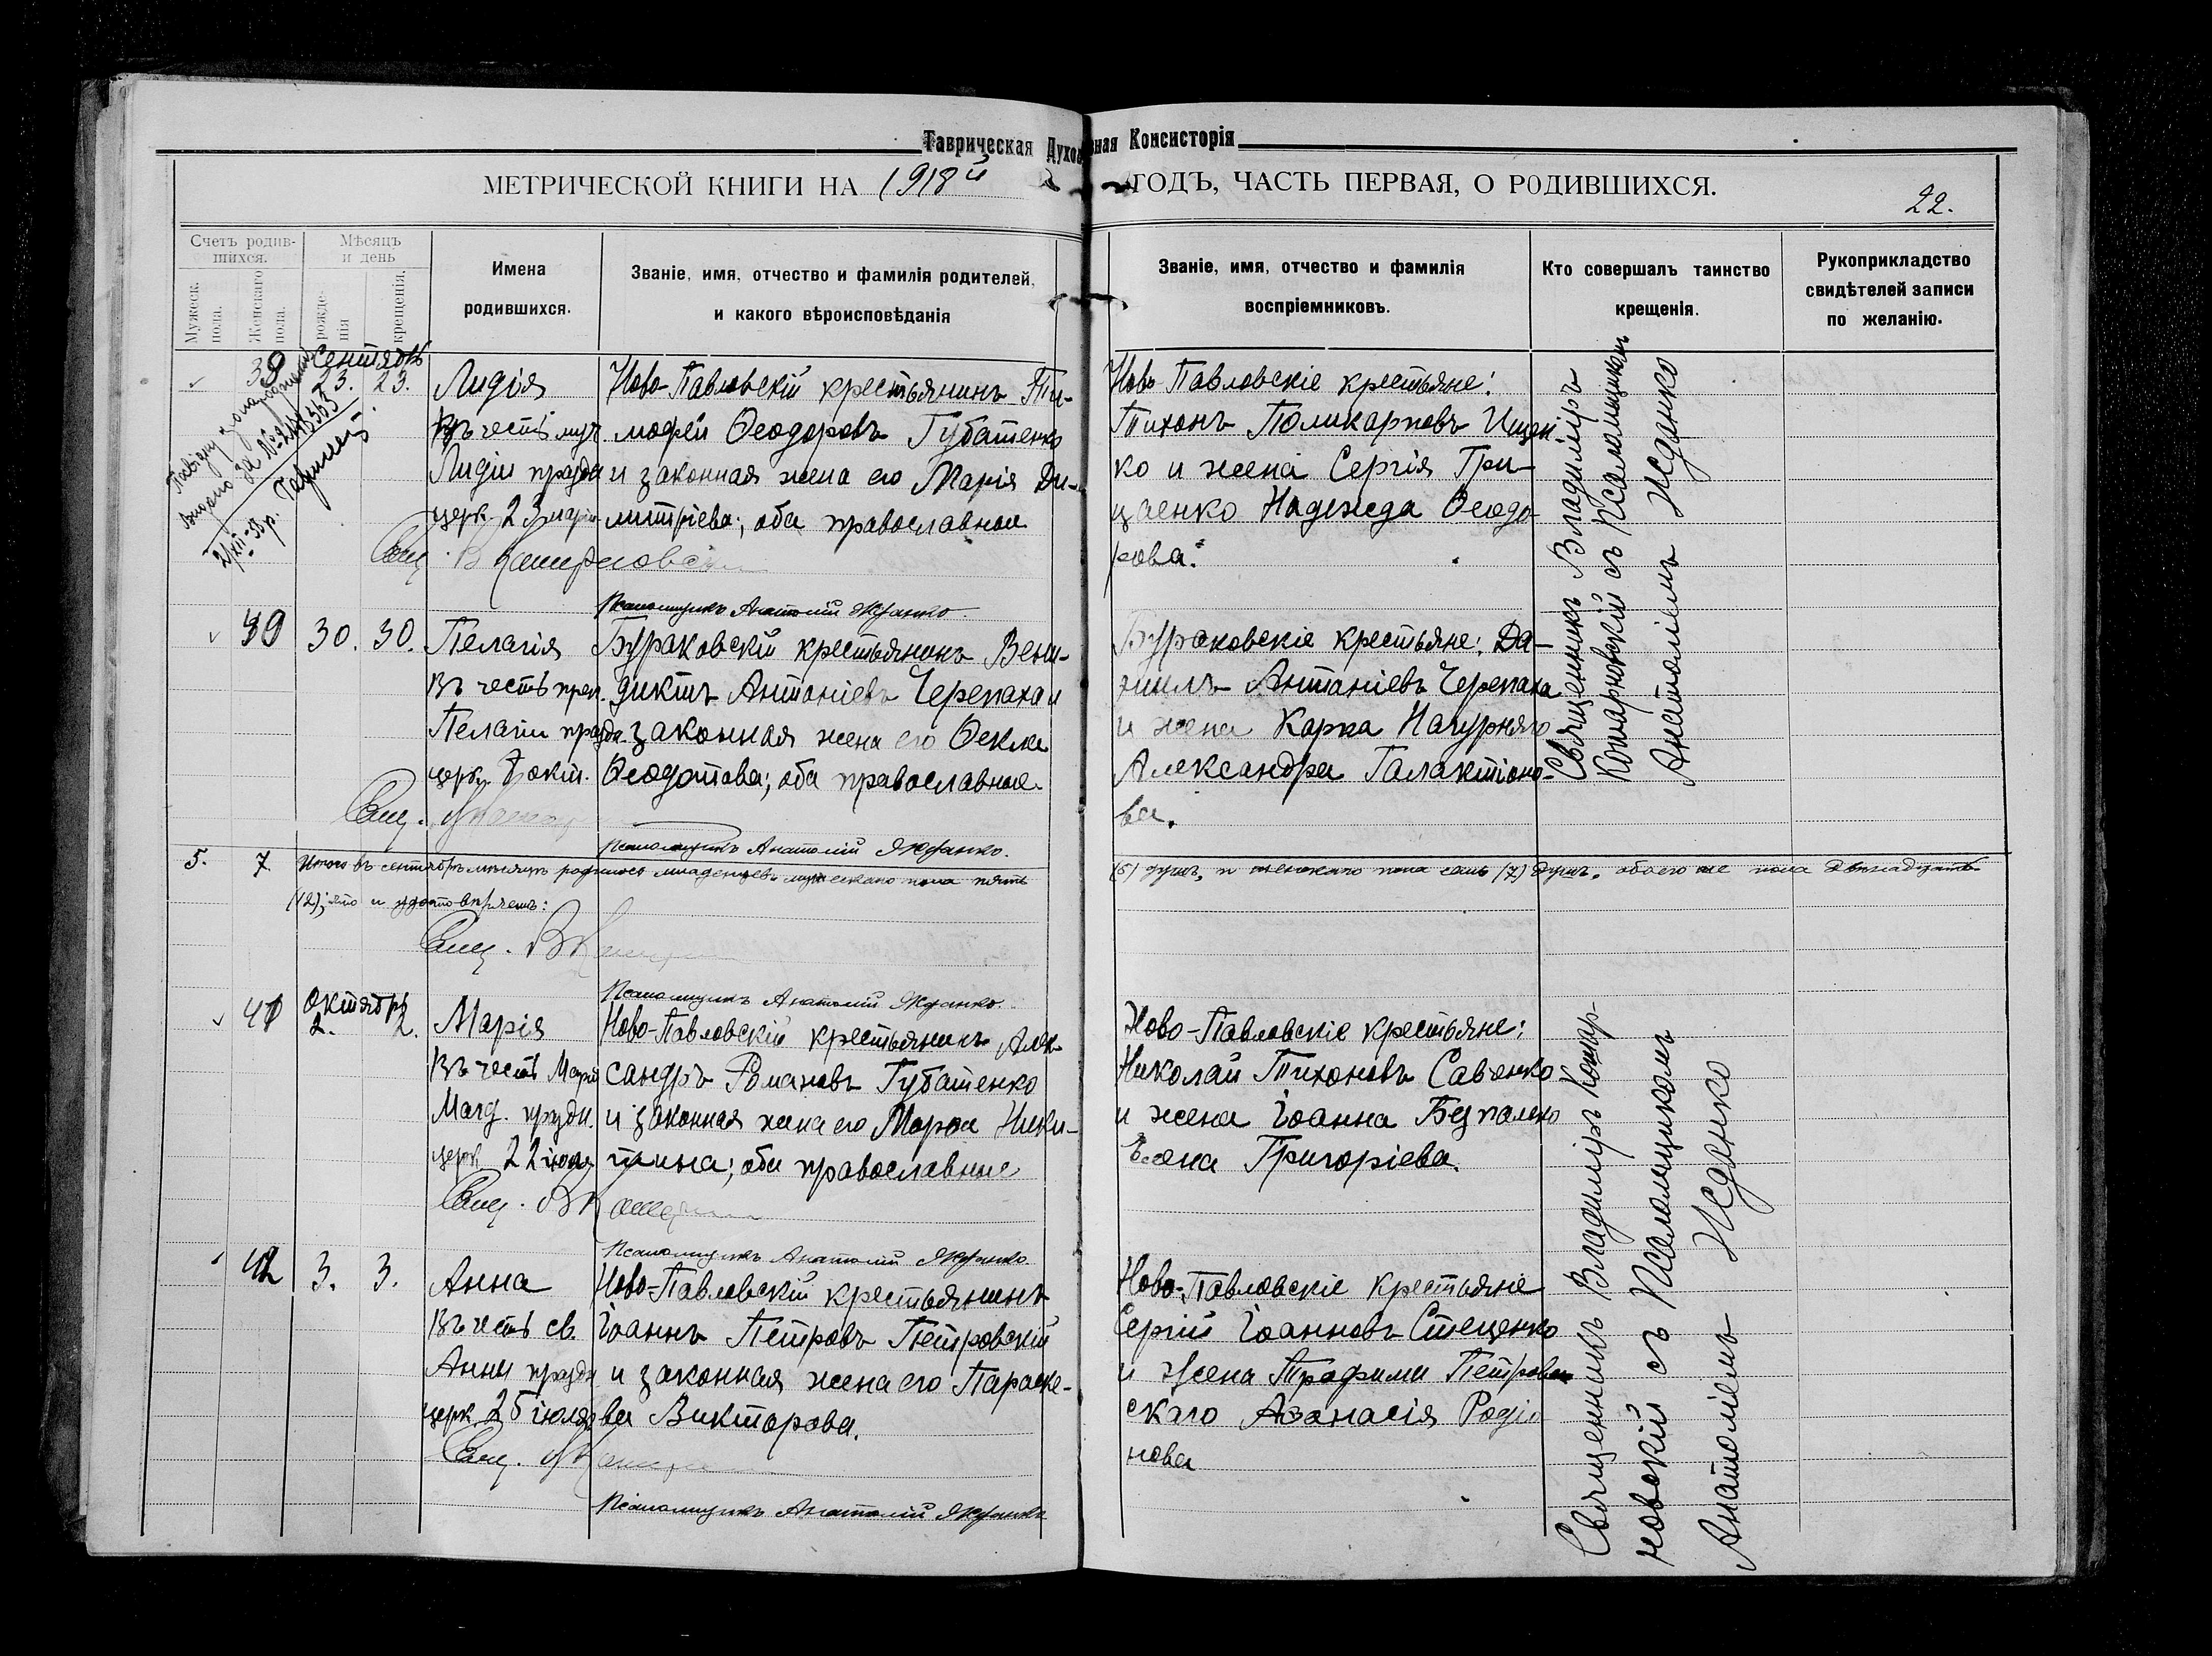 Таврическая Духовная Консисторія
МЕТРИЧЕСКОЙ КНИГИ НА 1918й ГОДЪ, ЧАСТЬ ПЕРВАЯ, О РОДИВШИХСЯ.
22.
Счетъ родившихся.
Мужеск. пола.
Женскаго пола.
Мѣсяцъ и день
рожденія
крещенія.
Имена родившихся.
Званіе, имя, отчество и фамилія родителей, и какого вѣроисповѣданія
Званіе, имя, отчество и фамилія воспріемниковъ.
Кто совершалъ таинство крещенія.
Рукоприкладство свидѣтелей записи по желанію.
Сентябрь
23. 23.
Лидія
Въ честь муч.
Лидіи праздн
церк. 23 марта
Ново-Павловскій крестьянинъ Ти-
мофей Ѳеодоровъ Губатенко
и законная жена его Марія Ди-
митріева; оба православные
Свящ.
Псаломщикъ Анатолій Жданко.
Ново-Павловскіе крестьяне:
Тихонъ Поликарповъ Ищен
ко и жена Сергія Гри-
цаенко Надежда Ѳеодо-
рова.
Священникъ Владиміръ
Комарновскій съ Псаломщикомъ
Анатоліемъ Жданко
30. 30.
Пелагія
Въ честь преп.
Пелагіи праздн.
церк. 7 окт.
Бураковскій крестьянинъ Вени-
диктъ Антоніевъ Черепаха и
законная жена его Ѳекла
Ѳеодотова; оба православные.
Свящ.
Псаломщикъ Анатолій Жданко.
Бураковскіе крестьяне: Да-
ніилъ Антоніевъ Черепаха
и жена Карпа Нагурняго
Александра Галактіоно-
ва.
5. 7. Итого въ сентябрѣ мѣсяцѣ родилось младенцевъ мужескаго пола пять (5) душъ, и женскаго пола семь (7) душъ, обоего же пола двѣнадцать
(12); что и удостовѣряемъ:
Свящ.
Псаломщикъ Анатолій Жданко.
41
Октябрь
2. 2.
Марія
Въ честь Маріи
Магд. праздн.
церк. 22 іюля
Ново-Павловскій крестьянинъ Алек-
сандръ Романовъ Губатенко
и законная жена его Марѳа Ники-
тина; оба православные
Свящ.
Псаломщикъ Анатолій Жданко.
Ново-Павловскіе крестьяне:
Николай Тихоновъ Савенко
и жена Іоанна Безпалько
Григоріева.
Священникъ Владиміръ Комар-
новскій съ Псаломщикомъ
Анатоліемъ Жданко
42
3. 3.
Анна
Въ честь св.
Анны праздн
церк. 25 іюля
Ново-Павловскій крестьянинъ
Іоаннъ Петровъ Петровскій
и законная жена его Параске-
ва Викторова.
Свящ.
Псаломщикъ Анатолій Жданко.
Ново-Павловскіе крестьяне
Сергій Іоанновъ Стеценко
и жена Трофима Петров
скаго Аѳанасія Родіо
нова